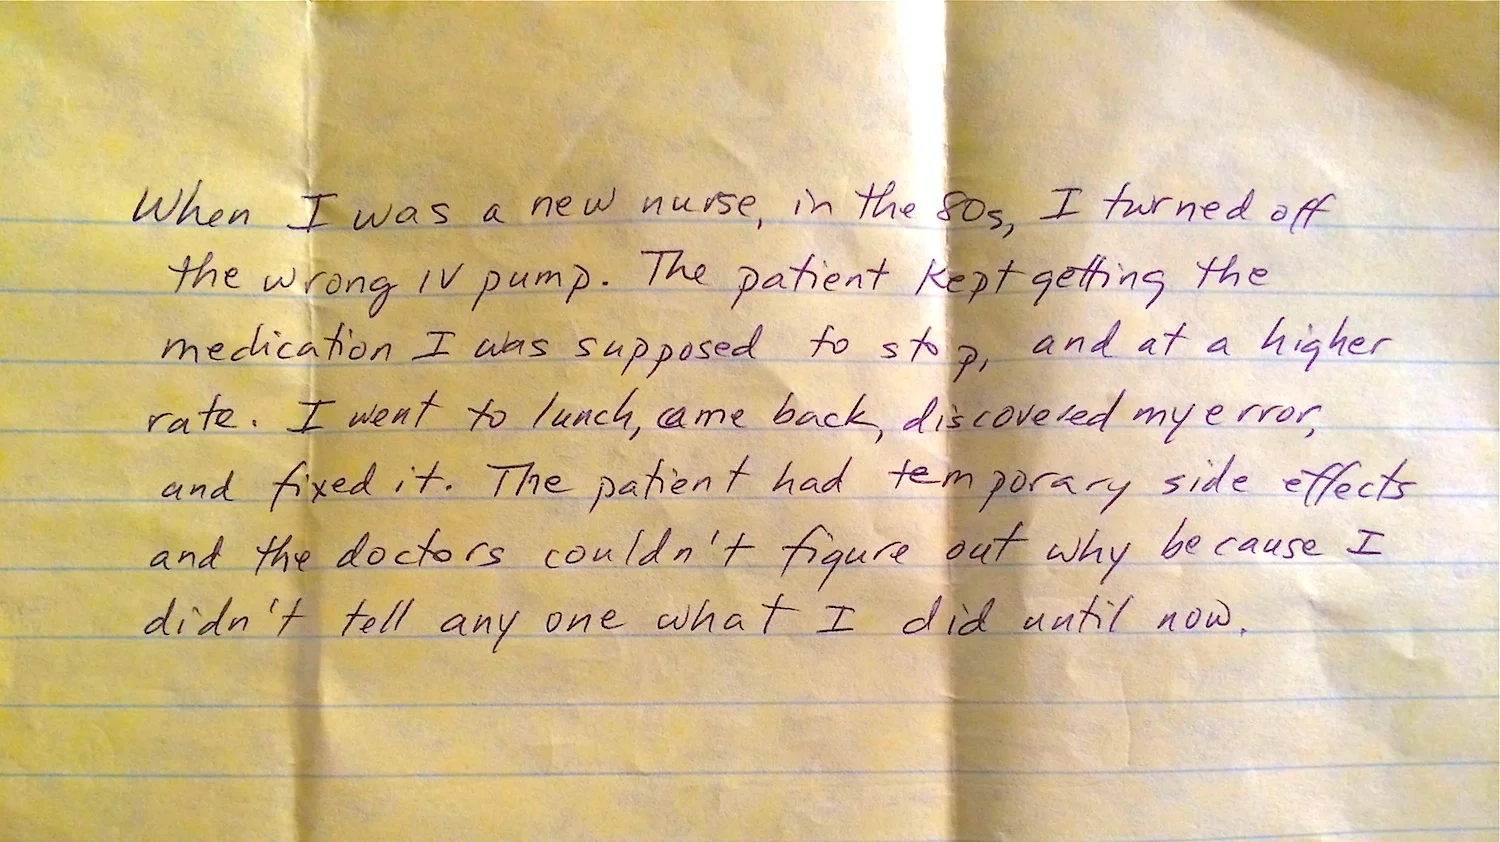 When I was a new nurse, in the 80s, I turned off
the wrong IV pump. The patient kept getting the
medication I was supposed to stop, and at a higher
rate. I went to lunch, came back, discovered my error,
and fixed it. The patient had temporary side effects
and the doctors couldn't figure out why because I
didn't tell any one what I did until now.